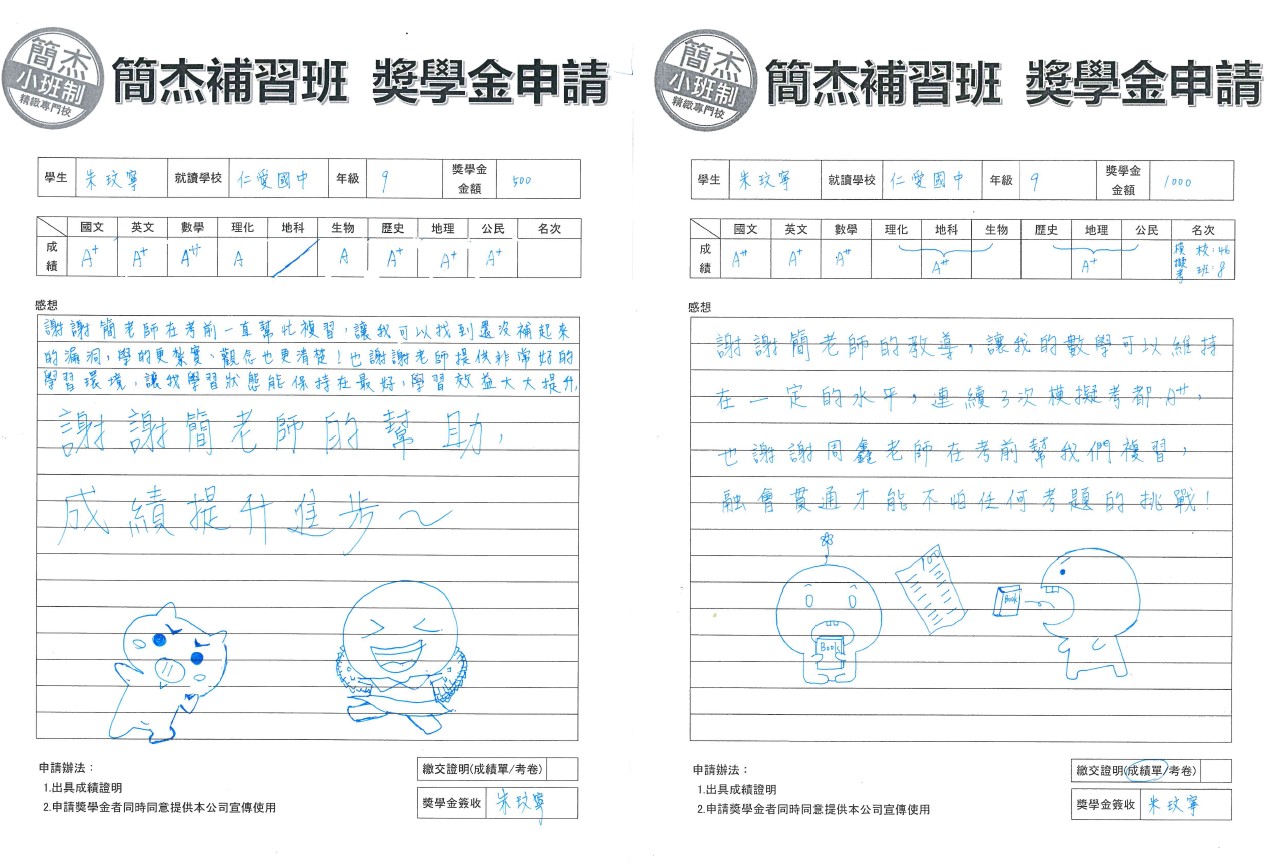 簡杰
小班制
精緻專門校
簡杰補習班 獎學金申請
學生 朱玟寧 就讀學校 仁愛國中 年級 9 獎學金金額 500
國文 英文 數學 理化 地科 生物 歷史 地理 公民 名次
成績 A+ A+ A++ A A A+ A+ A+
感想
謝謝簡老師在考前一直幫忙複習,讓我可以找到還沒補起來
的漏洞,學的更紮實、觀念也更清楚!也謝謝老師提供非常好的
學習環境,讓我學習狀態能保持在最好,學習效益大大提升,
謝謝簡老師的幫助,
成績提升進步~
申請辦法:
1.出具成績證明
2.申請獎學金者同時同意提供本公司宣傳使用
繳交證明(成績單/考卷)
獎學金簽收 朱玟寧
簡杰
小班制
精緻專門校
簡杰補習班 獎學金申請
學生 朱玟寧 就讀學校 仁愛國中 年級 9 獎學金金額 1000
國文 英文 數學 理化 地科 生物 歷史 地理 公民 名次
成績 A++ A+ A++ A++ A+ 模擬考 校:46 班:8
感想
謝謝簡老師的教導,讓我的數學可以維持
在一定的水平,連續3次模擬考都A++,
也謝謝周鑫老師在考前幫我們複習,
融會貫通才能不怕任何考題的挑戰!
100
Book
Book
申請辦法:
1.出具成績證明
2.申請獎學金者同時同意提供本公司宣傳使用
繳交證明(成績單/考卷)
獎學金簽收 朱玟寧